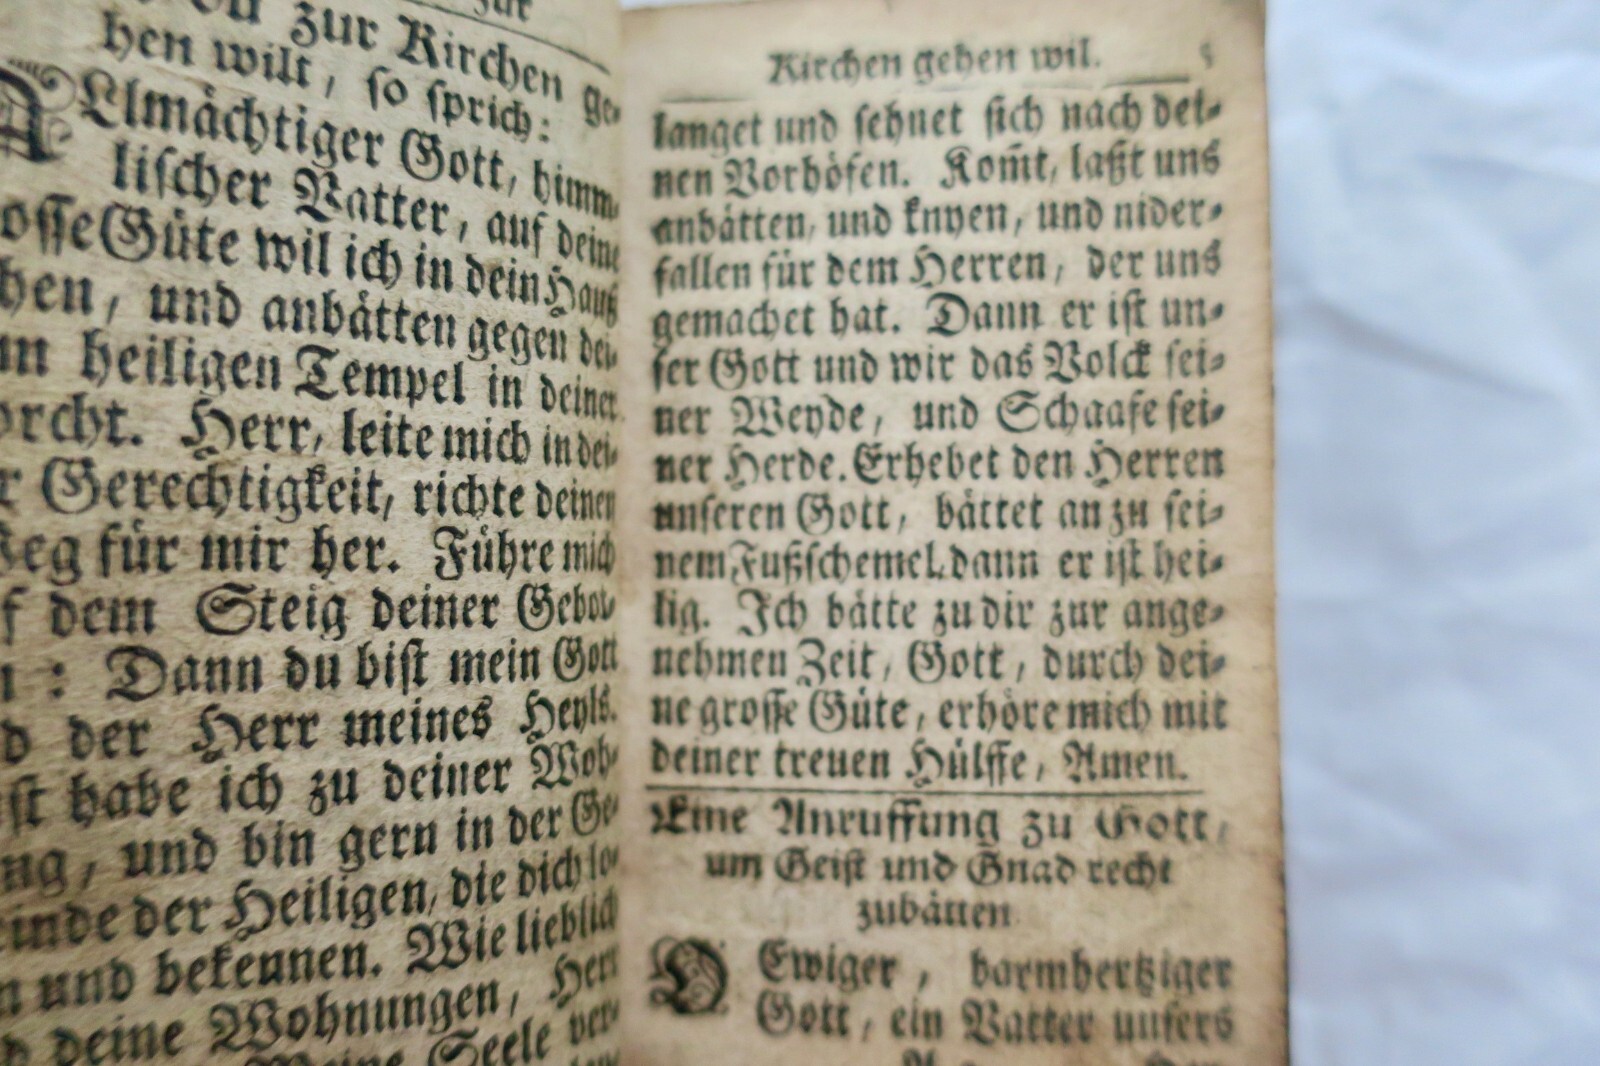 zur
zur Kirchen ge-
hen wilt, so sprich:
ALlmächtiger Gott, himm-
lischer Vatter, auf deine
grosse Güte wil ich in dein Hauß
gehen, und anbätten gegen dei-
nem heiligen Tempel in deiner
Forcht. Herr, leite mich in dei-
ner Gerechtigkeit, richte deinen
Weg für mir her. Führe mich
auf dem Steig deiner Gebot-
ten: Dann du bist mein Gott
und der Herr meines Heyls.
Lust habe ich zu deiner Woh-
nung, und bin gern in der Ge-
meinde der Heiligen, die dich lo-
ben und bekennen. Wie lieblich
sind deine Wohnungen, Herr
Meine Seele ver-
Kirchen gehen wil. 5
langet und sehnet sich nach dei-
nen Vorhöfen. Kom̃t, laßt uns
anbätten, und knyen, und nider-
fallen für dem Herren, der uns
gemachet hat. Dann er ist un-
ser Gott und wir das Volck sei-
ner Weyde, und Schaafe sei-
ner Herde. Erhebet den Herren
unseren Gott, bättet an zu sei-
nem Fußschemel, dann er ist hei-
lig. Ich bätte zu dir zur ange-
nehmen Zeit, Gott, durch dei-
ne grosse Güte, erhöre mich mit
deiner treuen Hülffe, Amen.
Eine Anruffung zu Gott,
um Geist und Gnad recht
zubätten
O Ewiger, barmhertziger
Gott, ein Vatter unsers